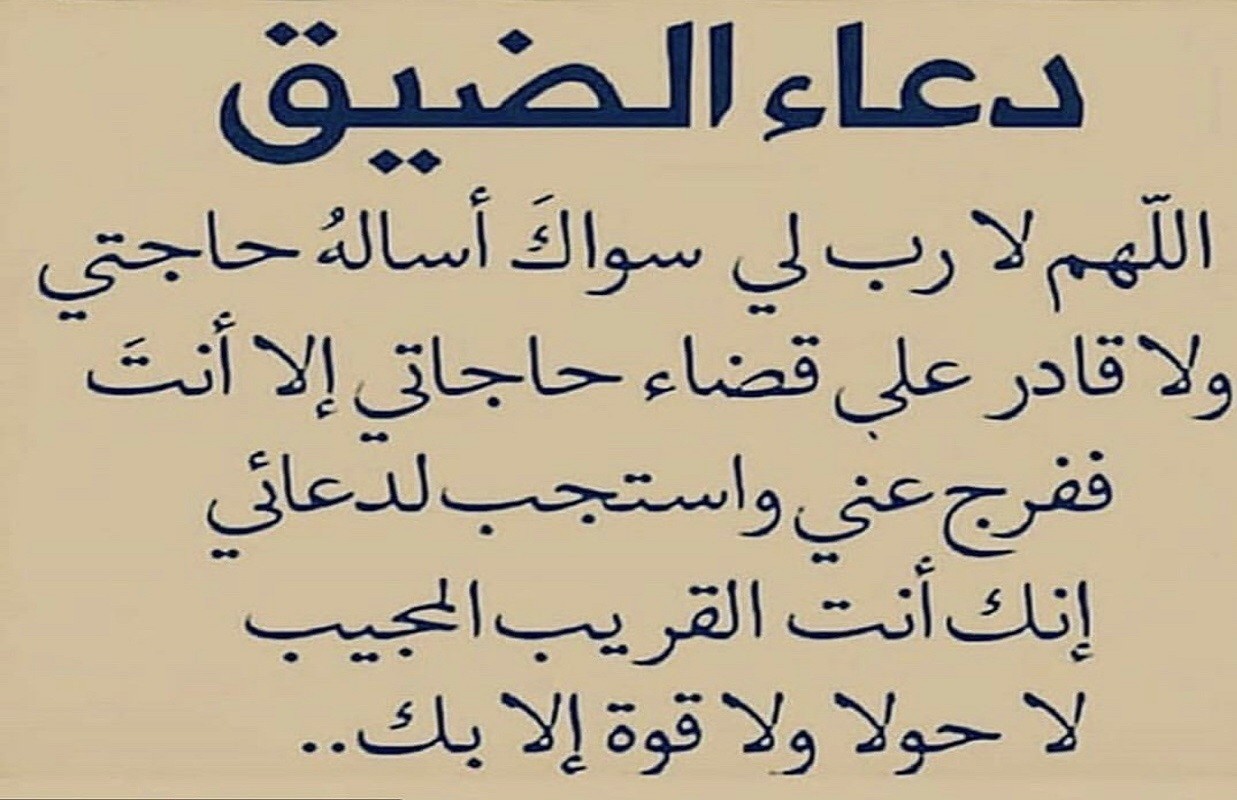 دعاء الضيق
اللّهم لا رب لي سواكَ أسالهُ حاجتي
ولا قادر على قضاء حاجاتي إلا أنتَ
ففرج عني واستجب لدعائي
إنك أنت القريب المجيب
لا حولا ولا قوة إلا بك..